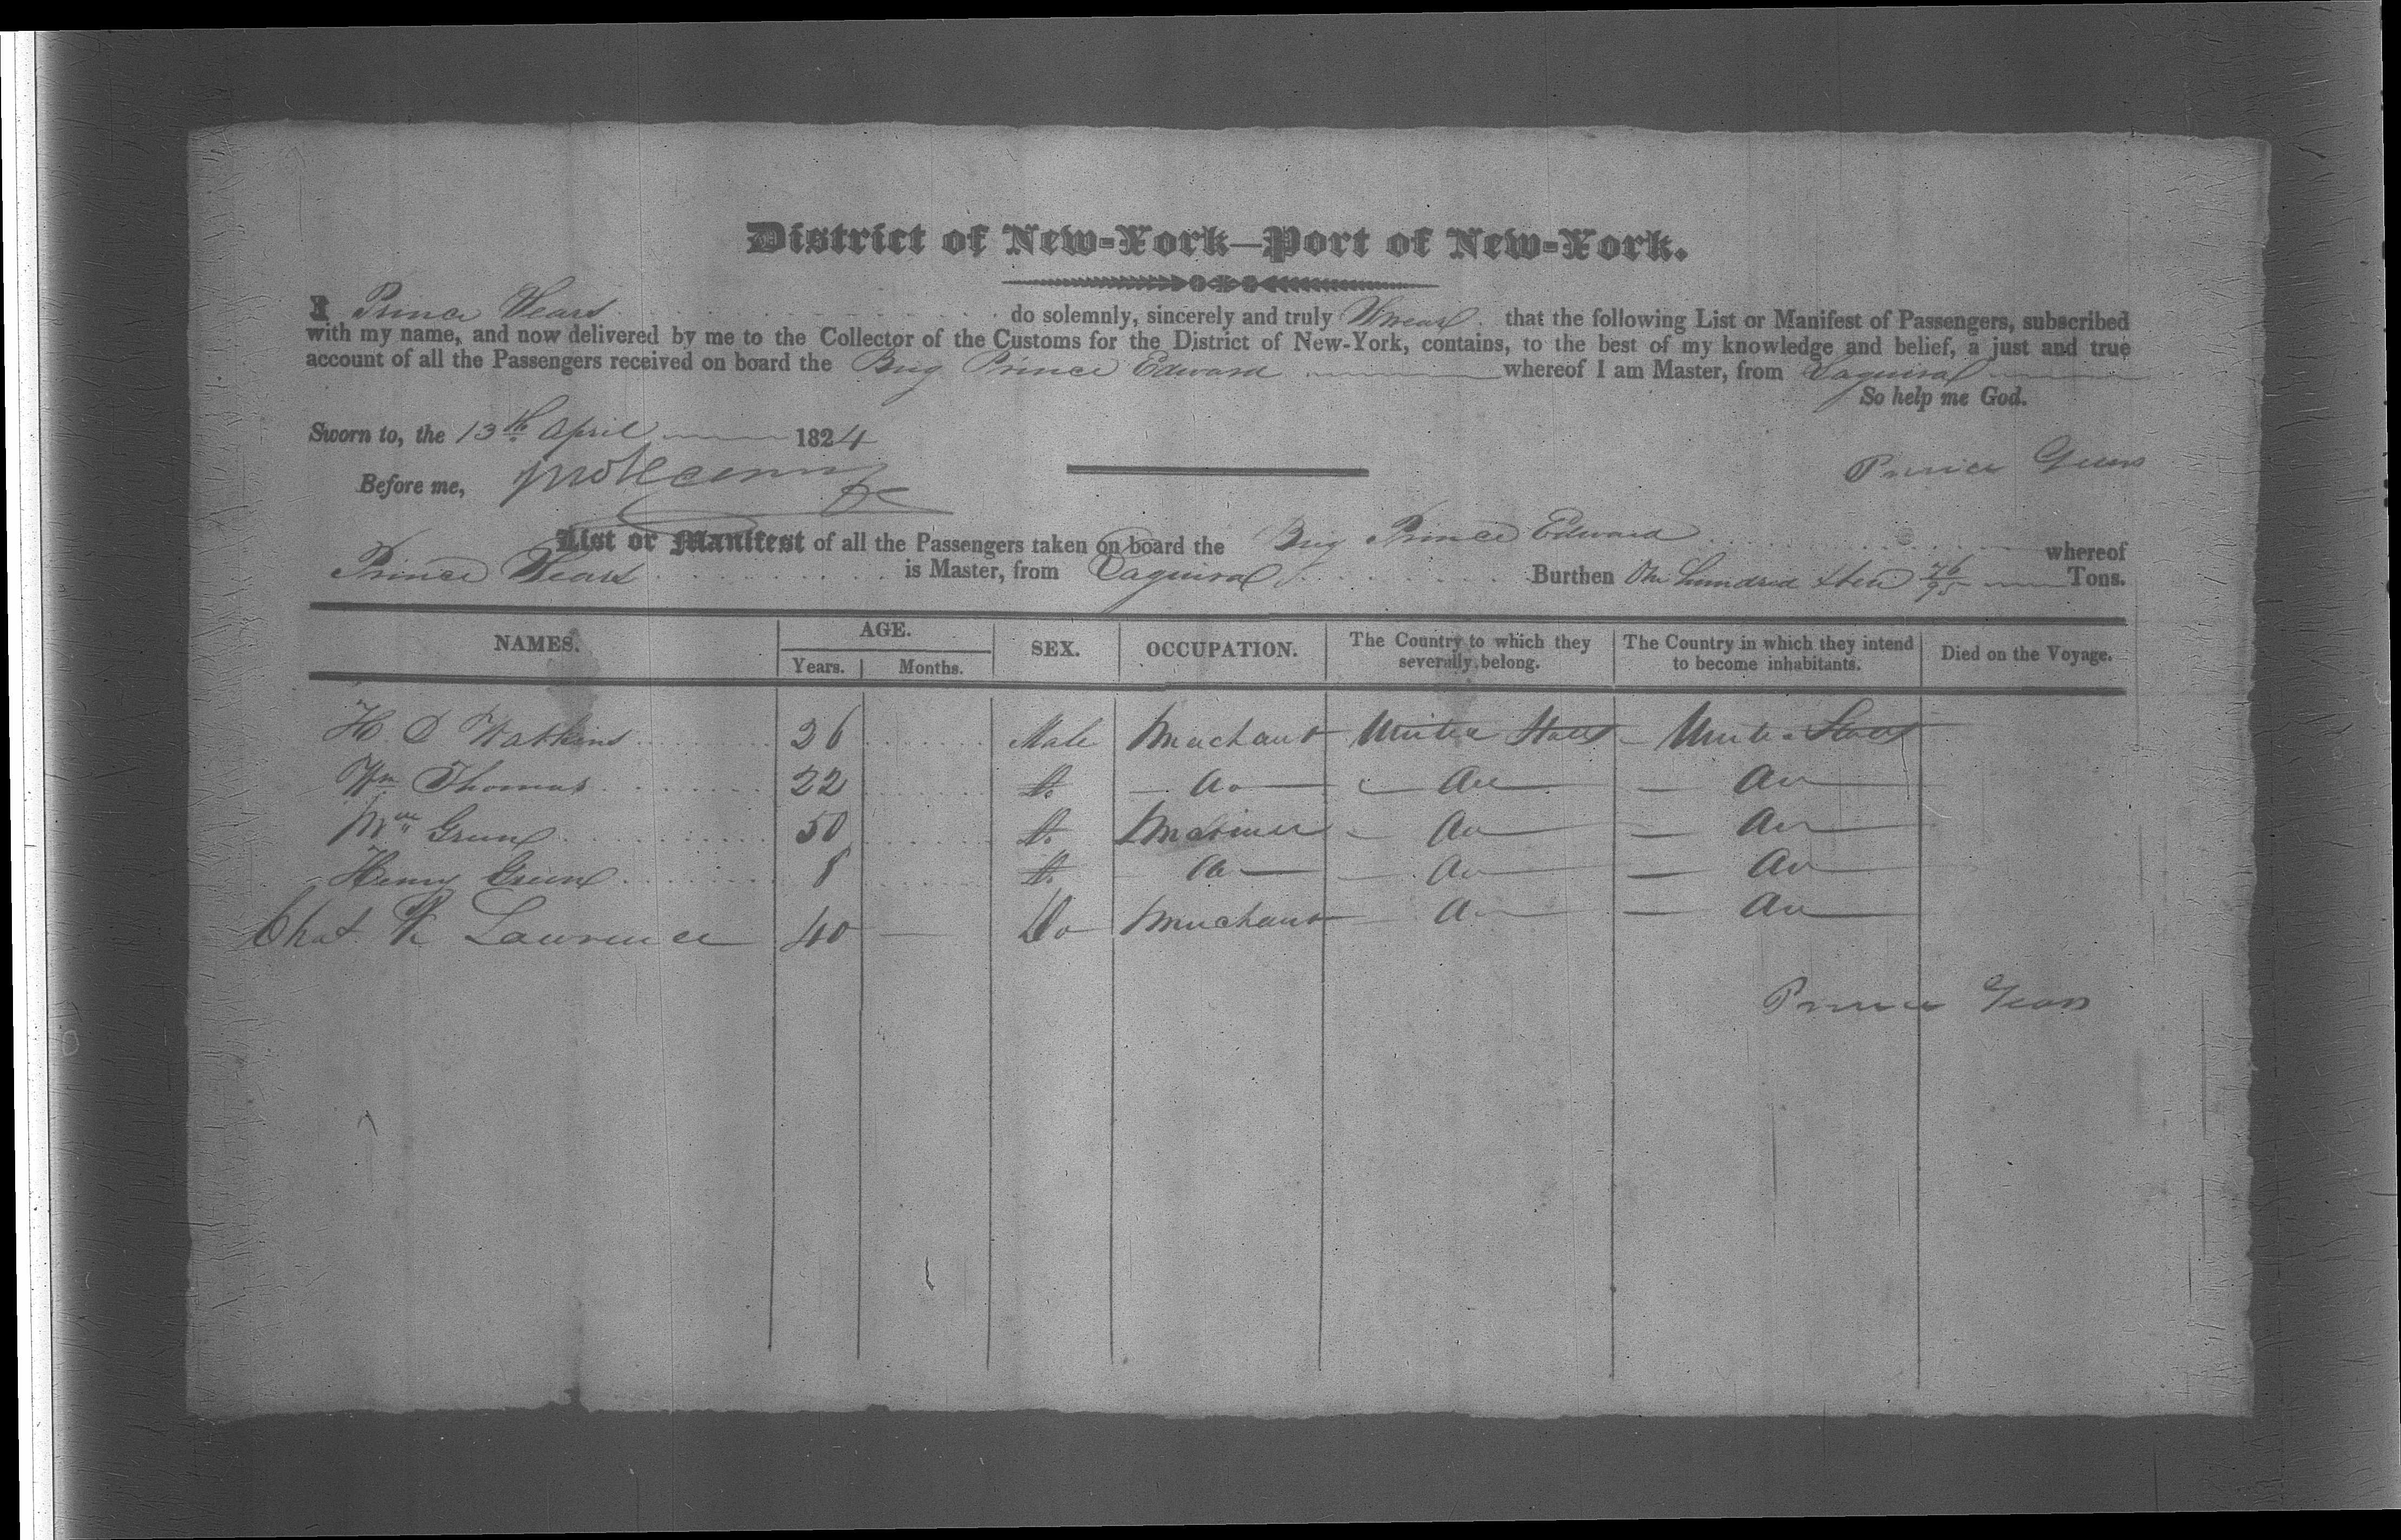 District of New-York—Port of New-York.
I Prince do solemnly, sincerely and truly Swear that the following List or Manifest of Passengers, subscribed
with my name, and now delivered by me to the Collector of the Customs for the District of New-York, contains, to the best of my knowledge and belief, a just and true
account of all the Passengers received on board the Brig Prince Edward whereof I am Master, from
So help me God.
Sworn to, the 13th April 1824
Before me,
Prince
List or Manifest of all the Passengers taken on board the Brig Prince Edward whereof
Prince is Master, from Burthen One hundred & ten 76/95 Tons.
NAMES. AGE. SEX. OCCUPATION. The Country to which they severally belong. The Country in which they intend to become inhabitants. Died on the Voyage.
Years. Months.
H. D Watkins 26 Male Merchant United States United States
Wm Thomas 22 do do do do
Wm Green 50 do Mariner do do
Henry Green 8 do do do do
Chas. W Lawrence 40 Do Merchant do do
Prince